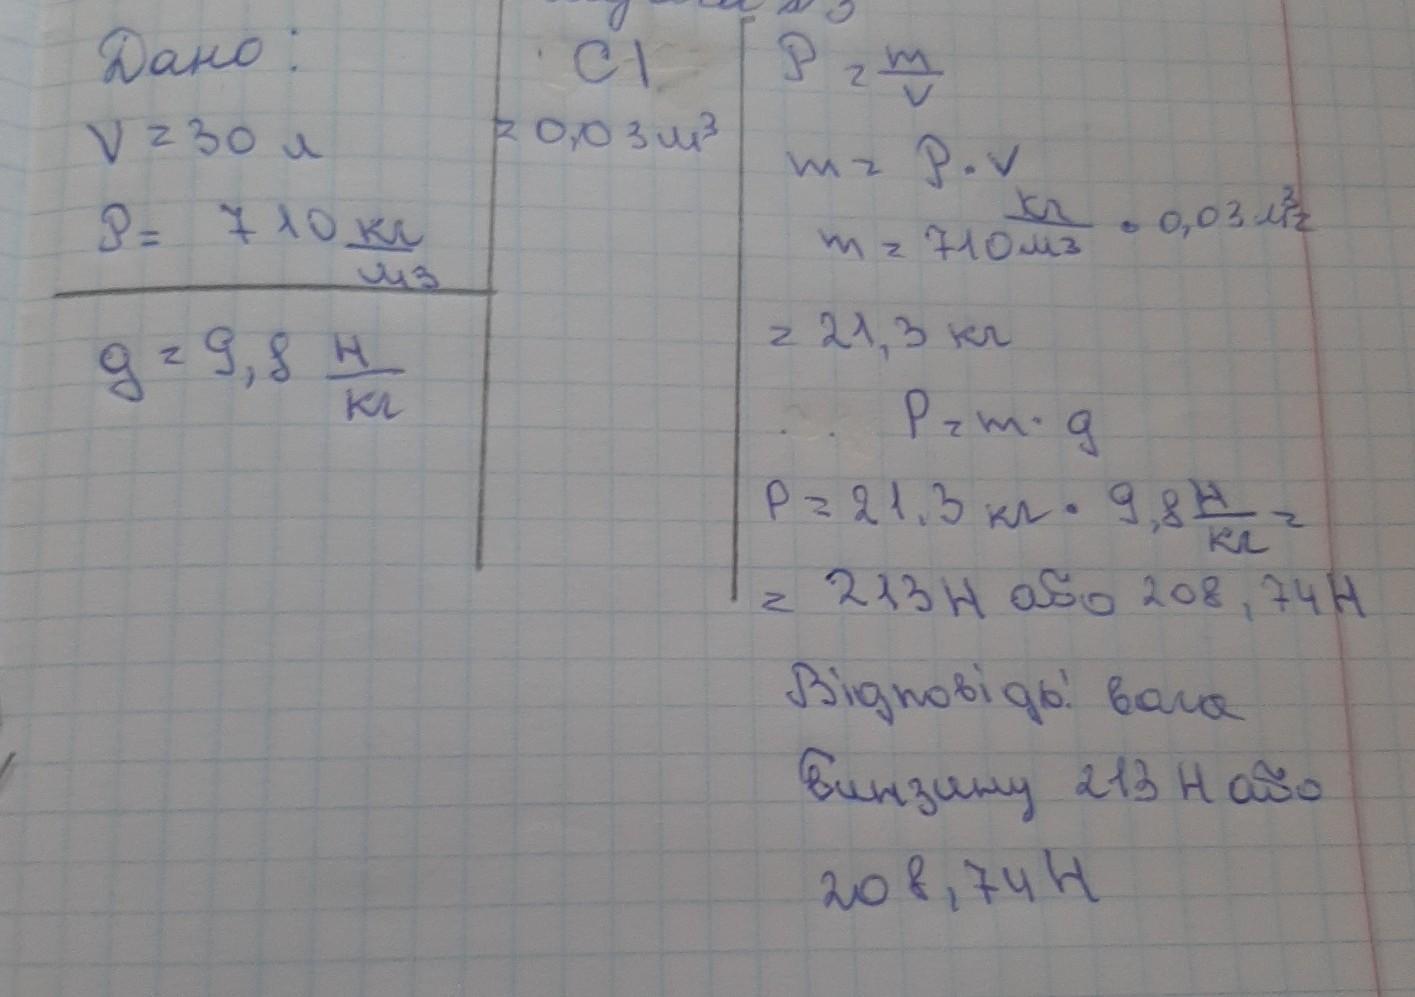 Дано:
V = 30 л
P = 710 кг/м3
g = 9,8 Н/кг
СІ
= 0,03 м³
P = m/V
m = P · V
m = 710 кг/м3 · 0,03 м³ =
= 21,3 кг
P = m · g
P = 21,3 кг · 9,8 Н/кг =
= 213 Н або 208,74 Н
Відповідь: вага
бинзину 213 Н або
208,74 Н